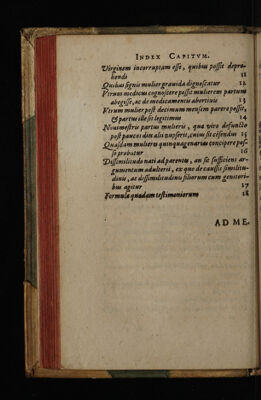 INDEX CAPITVM.
Virginem incorruptam esse, quibus possit depre-
hendi 11
Quibus signis mulier grauida dignoscatur 12
Vtrum medicus cognoscere possit mulierem partum
abegisse, ac de medicamentis abortiuis 13
Vtrum mulier post decimum mensem parere possit,
& partus ille sit legitimus 14
partus mulieris, qua viro defuncto
post paucos dies alii nupserit, cuius sit censendus 15
Quasdam mulieres quinquagenarias concipere pos-
se probatur 16
Dissimilitudo nati ad parentes, an sit sufficiens ar-
gumentum adulterii, ex quo de caussis similitu-
dinis, ac dissimilitudinis filiorum cum genitori-
bus agitur 17
Formula quædam testimoniorum 18
AD ME-